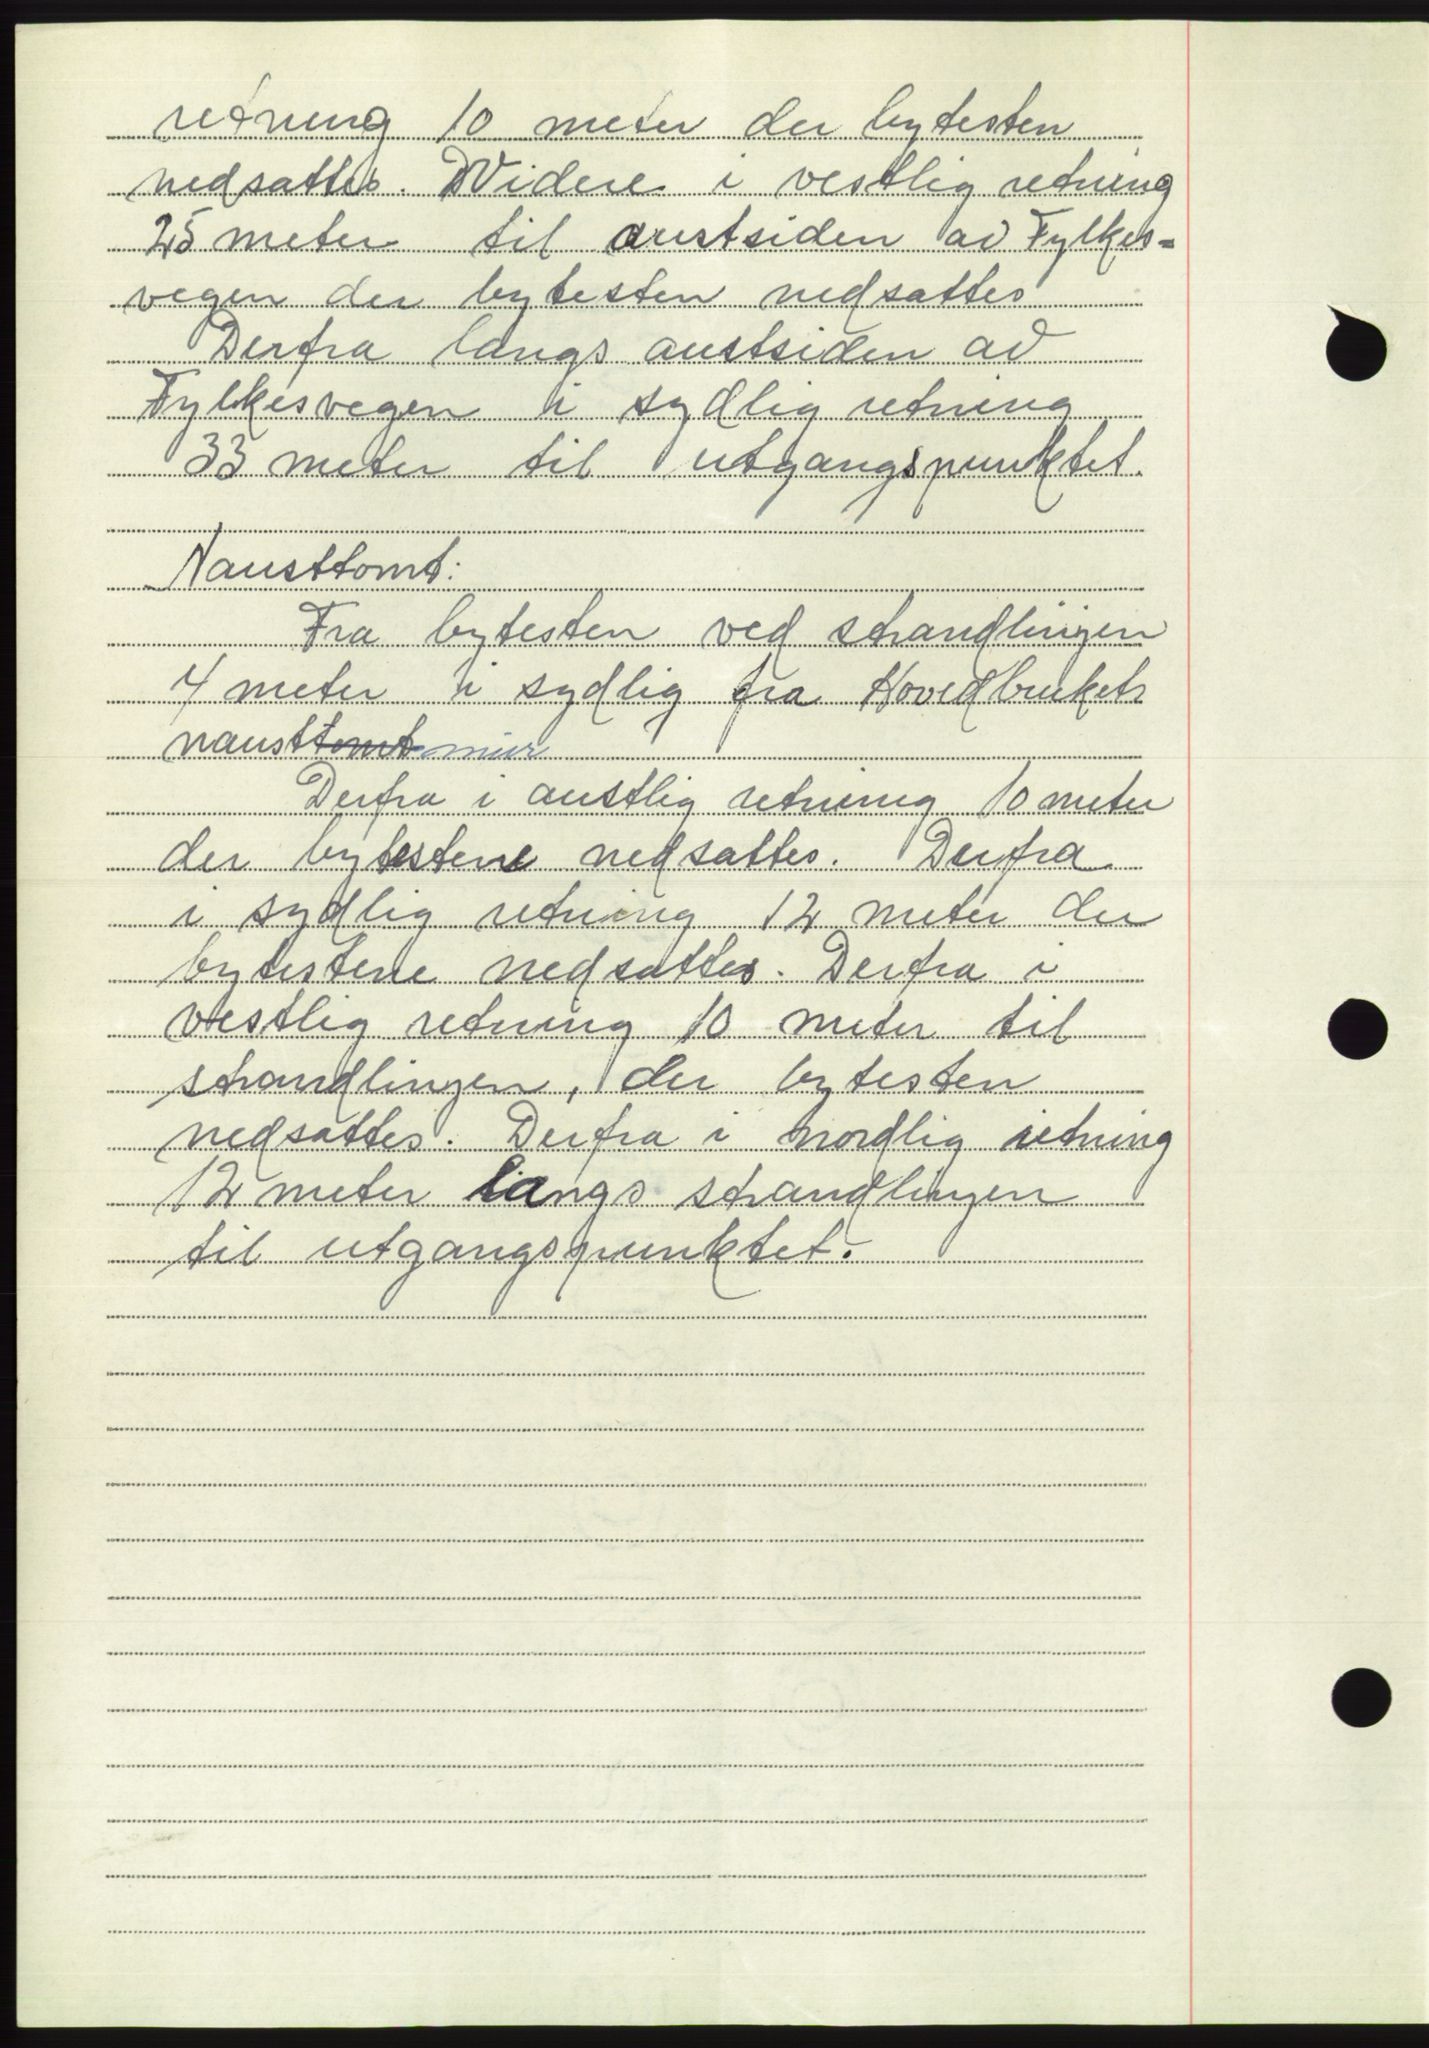 retning 10 meter der bytesten
nedsattes. Videre i vestlig retning
25 meter til austsiden av Fylkes=
vegen der bytesten nedsattes
Derfra langs austsiden av
Fylkesvegen i sydlig retning
33 meter til utgangspunktet.
Nausttomt:
Fra bytesten ved strandlinjen
4 meter i sydlig fra Hovedbrukets
nausttomt mur
Derfra i austlig retning 10 meter
der bytestene nedsattes. Derfra
i sydlig retning 12 meter der
bytestene nedsattes. Derfra i
vestlig retning 10 meter til
strandlinjen, der bytesten
nedsattes. Derfra i nordlig retning
12 meter langs strandlinjen
til utgangspunktet.